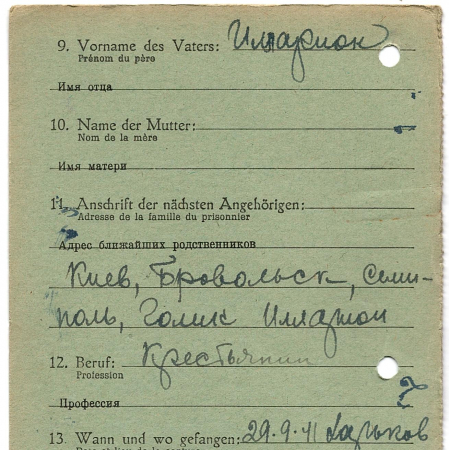 9. Vorname des Vaters: Илларион
Prénom du père
Имя отца
10. Name der Mutter:
Nom de la mère
Имя матери
11. Anschrift der nächsten Angehörigen:
Adresse de la famille du prisonnier
Адрес ближайших родственников
Киев, Бровольск, Семи-
поль, Голик Илларион
12. Beruf: Крестьянин
Profession
Профессия
13. Wann und wo gefangen: 29.9.41 Харьков